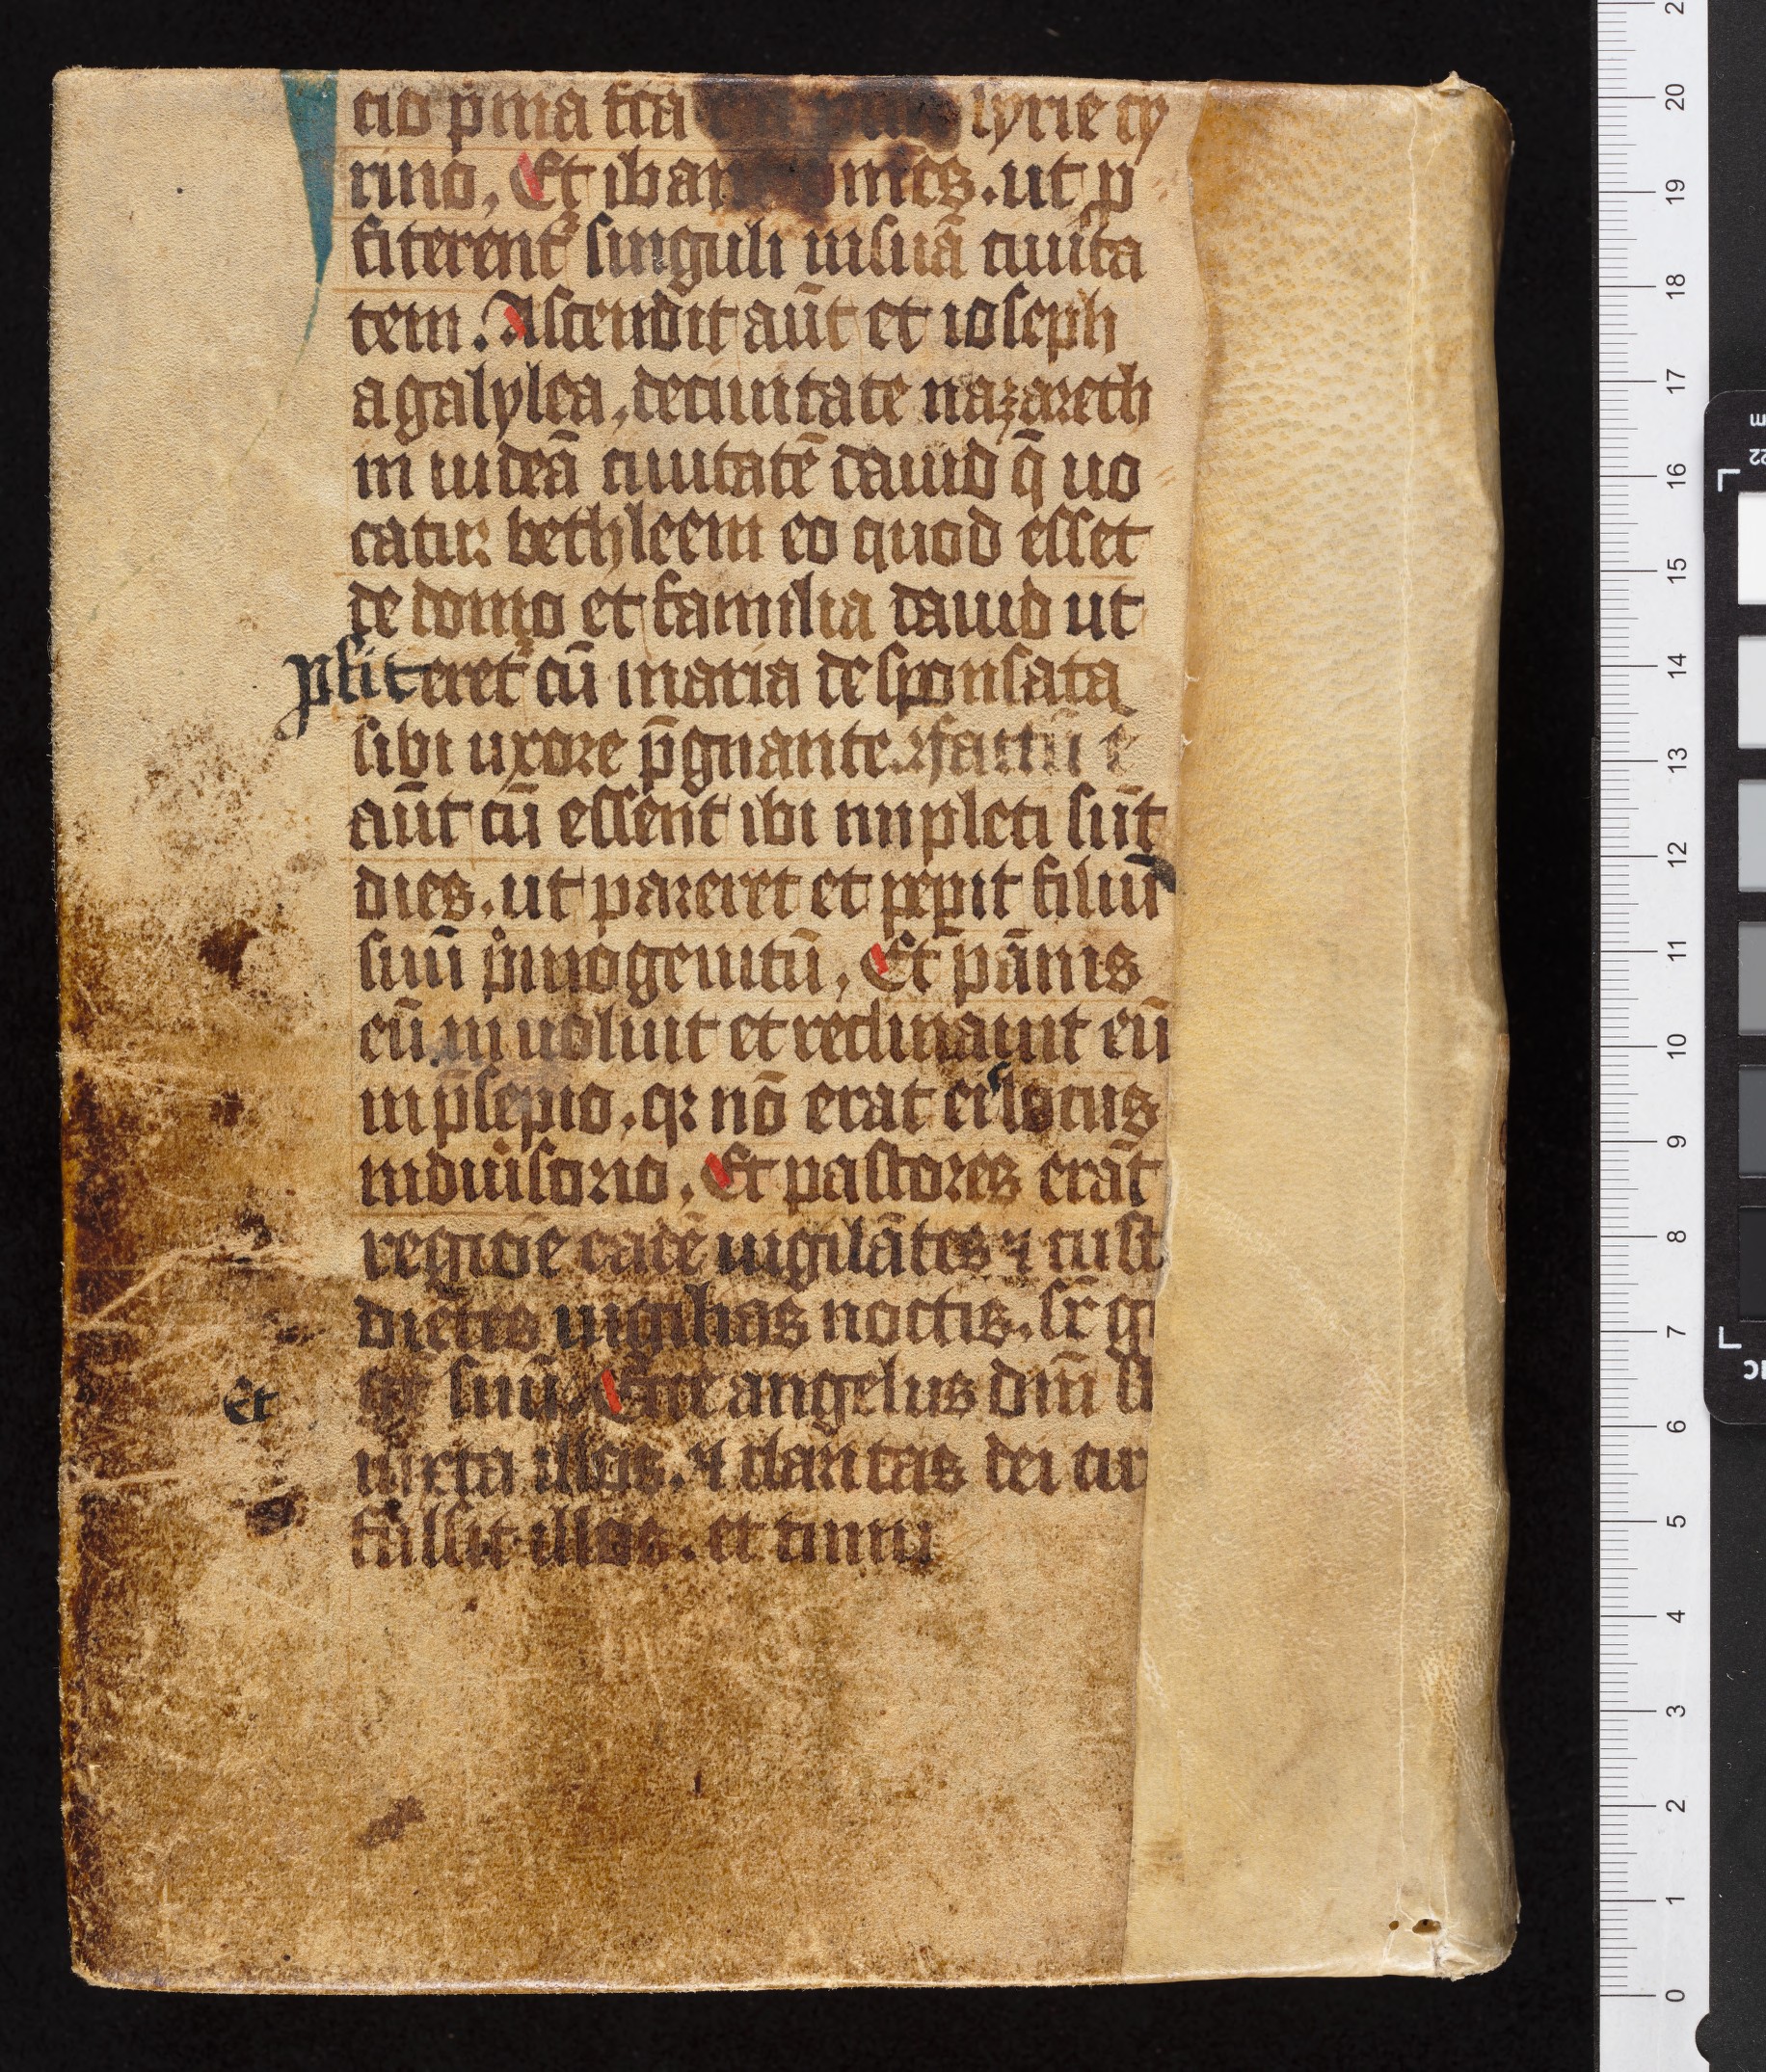 cio p̄ma fc̄a lyrie cy
rino, Et iban omēs. ut p
fiterent᷑ singuli insuā ciuita
tem. Ascendit aūt et ioseph
a galylea, deciuitate nazareth
in iudeā ciuitatē dauid q̄ uo
catur bethleem eo quod esset
de domo et familia dauid ut
ꝓfiteret᷑ cū maria desponsata
sibi uxore p̄gnante. factū ē
aūt cū essent ibi impleti sūt
dies. ut pareret et peperit filiū
suū pͥmogenitū, Et pānis
eū in uoluit et reclinauit eū
in p̄sepio. qꝛ nō erat ei locus
indiuisorio, Et pastores erāt
regioīe eadē uigilātes ⁊ cust
diētes uigilias noctis. sr̄ g
Et suū. Ecce angelus dn̄i st
iuxta illos. ⁊ claritas dei cir
fulsit illos. et timu